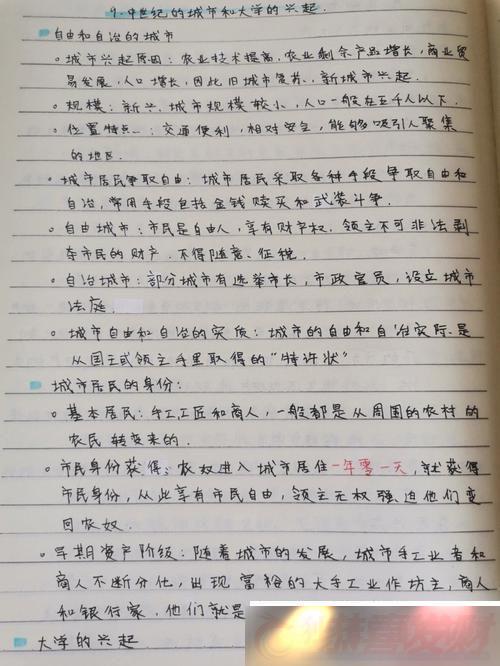 9.中世纪的城市和大学的兴起.
自由和自治的城市
。城市兴起原因:农业技术提高,农业剩余产品增长,商业贸
易发展,人口增长,因此旧城市复苏,新城市兴起.
。规模:新兴城市规模较小,人口一般在五千人以下.
。位置特点:交通便利,相对安全,能够吸引人聚集
的地区.
。城市居民争取自由:城市居民采取各种手段争取自由和
自治,常用手段包括金钱赎买和武装斗争.
。自由城市:市民是自由人,享有财产权.领主不可非法剥
夺市民的财产.不得随意征税.
。自治城市:部分城市有选举市长,市政官员,设立城市
法庭.
。城市自由和自治的实质:城市的自由和自治实际是
从国王或领主手里取得的"特许状"
城市居民的身份:
。基本居民:手工工匠和商人,一般都是从周围的农村的
农民转变来的.
。市民身份获得:农奴进入城市居住一年零一天,就获得
市民身份,从此享有市民自由,领主无权强迫他们变
回农奴.
。早期资产阶级:随着城市的发展,城市手工业者和
商人不断分化,出现富裕的大手工业作坊主,商人
和银行家.他们就是
大学的兴起